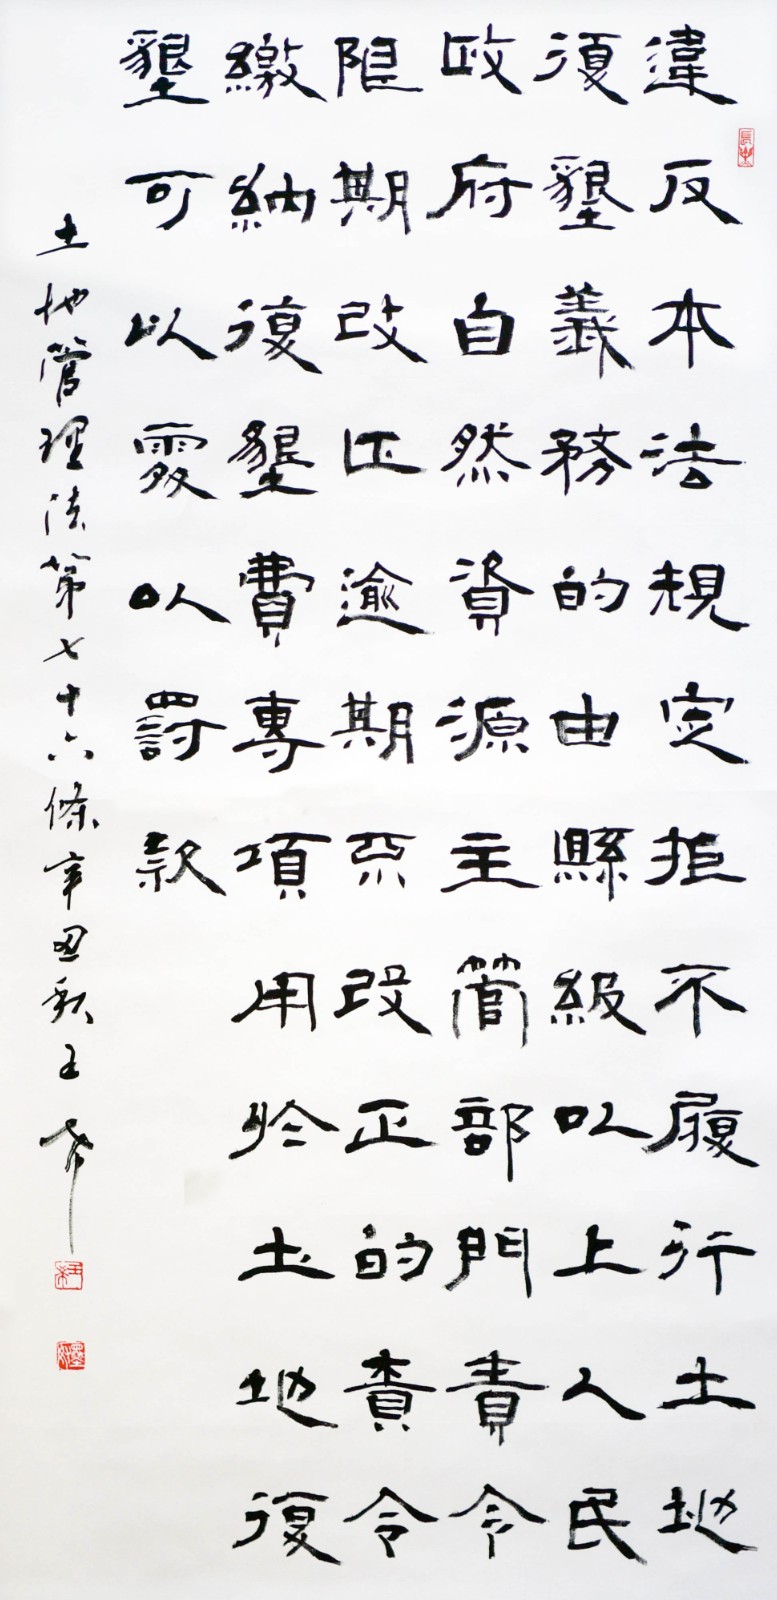 違反本法規定拒不履行土地
復墾義務的由縣級以上人民
政府自然資源主管部門責令
限期改正逾期不改正的責令
繳納復墾費專項用於土地復
墾可以處以罰款
土地管理法第七十六條辛丑秋王